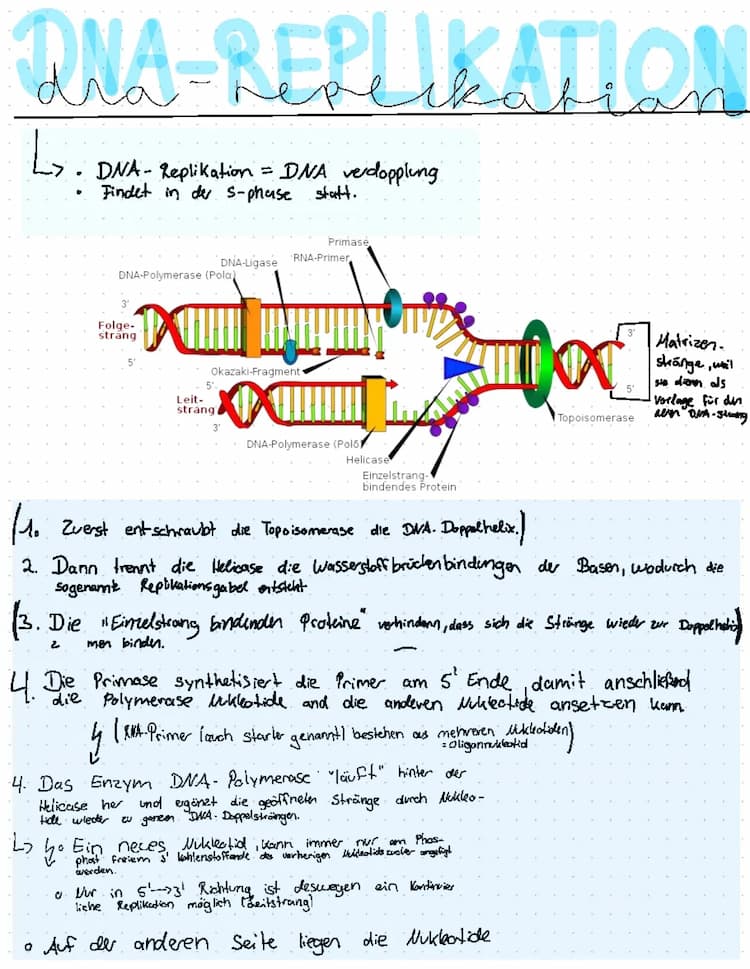 DNA-REPLIKATION
dna-replikation
↳ • DNA-Replikation = DNA verdopplung
• Findet in der S-phase statt.
Primase
DNA-Ligase
RNA-Primer
DNA-Polymerase (Polα)
3'
Folge-
strang
5'
Okazaki-Fragment
5'
Leit-
strang
3'
DNA-Polymerase (Polδ)
Helicase
Einzelstrang-
bindendes Protein
Topoisomerase
3'
5'
Matrizen-
stränge, weil
sie dann als
Vorlage für den
DNA-Strang
(1. Zuerst entschraubt die Topoisomerase die DNA-Doppelhelix.)
2. Dann trennt die Helicase die Wasserstoffbrückenbindungen der Basen, wodurch die
sogenannte Replikationsgabel entsteht
(3. Die "Einzelstrang bindenden Proteine" verhindern, dass sich die Stränge wieder zur Doppelhelix)
men binden.
4. Die Primase synthetisiert die Primer am 5' Ende, damit anschließend
die Polymerase Nukleotide and die anderen Nukleotide ansetzen kann
↳ (RNA-Primer (auch starter genannt) bestehen aus mehreren Nukleotiden)
= Oligonnukleotid
4. Das Enzym DNA-Polymerase "läuft" hinter der
Helicase her und ergänzt die geöffneten Stränge durch Nukleo-
tide wieder zu ganzen DNA-Doppelsträngen.
↳ Ein neues Nukleotid, kann immer nur am Phos-
phat freiem 3' Kohlenstoffende des vorherigen Nukleotids angefügt
werden.
o Nur in 5'→3' Richtung ist deswegen ein kontinuier
liche Replikation möglich (Leitstrang)
o Auf der anderen Seite liegen die Nukleotide